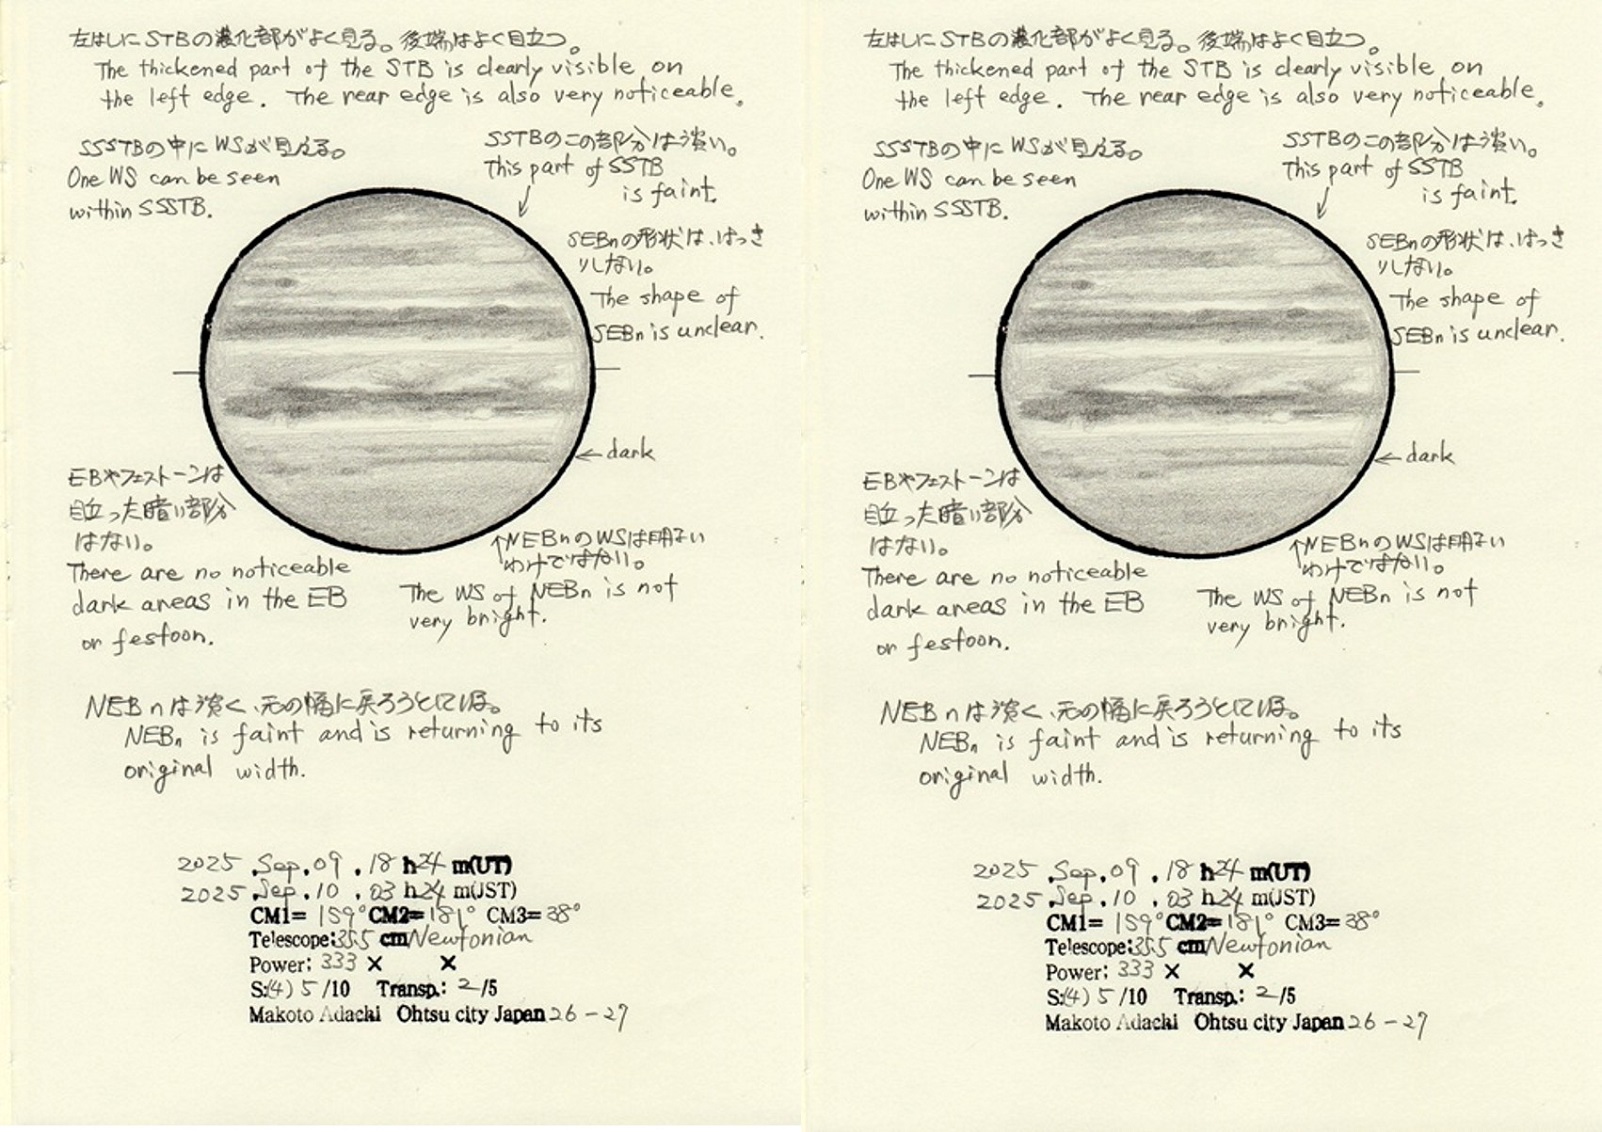 左はしにSTBの濃化部がよく見える。後端はよく目立つ。
The thickened part of the STB is clearly visible on
the left edge. The rear edge is also very noticeable.
SSSTBの中にWSが見える。
One WS can be seen
within SSSTB.
SSTBのこの部分は淡い。
This part of SSTB
is faint.
SEBnの形状は、はっき
りしない。
The shape of
SEBn is unclear.
← dark
EBやフェストーンは
目立った暗い部分
はない。
There are no noticeable
dark areas in the EB
or festoon.
↑NEBnのWSは明るい
わけではない。
The WS of NEBn is not
very bright.
NEBnは淡く、元の幅に戻ろうとしている。
NEBn is faint and is returning to its
original width.
2025 Sep. 09 . 18 h 24 m(UT)
2025 Sep. 10 . 03 h 24 m(JST)
CM1= 159° CM2= 181° CM3= 38°
Telescope: 35.5 cm Newtonian
Power: 333 × ×
S:(4) 5 /10 Transp.: 2 /5
Makoto Adachi Ohtsu city Japan 26-27
左はしにSTBの濃化部がよく見える。後端はよく目立つ。
The thickened part of the STB is clearly visible on
the left edge. The rear edge is also very noticeable.
SSSTBの中にWSが見える。
One WS can be seen
within SSSTB.
SSTBのこの部分は淡い。
This part of SSTB
is faint.
SEBnの形状は、はっき
りしない。
The shape of
SEBn is unclear.
← dark
EBやフェストーンは
目立った暗い部分
はない。
There are no noticeable
dark areas in the EB
or festoon.
↑NEBnのWSは明るい
わけではない。
The WS of NEBn is not
very bright.
NEBnは淡く、元の幅に戻ろうとしている。
NEBn is faint and is returning to its
original width.
2025 Sep. 09 . 18 h 24 m(UT)
2025 Sep. 10 . 03 h 24 m(JST)
CM1= 159° CM2= 181° CM3= 38°
Telescope: 35.5 cm Newtonian
Power: 333 × ×
S:(4) 5 /10 Transp.: 2 /5
Makoto Adachi Ohtsu city Japan 26-27